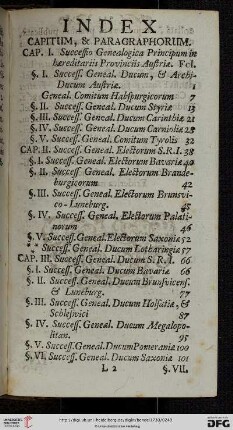 INDEX
CAPITUM, & PARAGRAPHORUM.
CAP. I. Successio Genealogica Principum in
hæreditariis Provinciis Austriæ. Fol.
§. I. Success. Geneal. Ducum, & Archi-
Ducum Austriæ. 1
Geneal. Comitum Habspurgicorum 7
§. II. Success. Geneal. Ducum Styriæ 13
§. III. Success. Geneal. Ducum Carinthiæ 21
§. IV. Success. Geneal. Ducum Carnioliæ 28
§. V. Success. Geneal. Comitum Tyrolis 32
CAP. II. Success. Geneal. Electorum S.R.I. 38
§. I. Success. Geneal. Electorum Bavariæ 40
§. II. Success. Geneal. Electorum Brande-
burgicorum 42
§. III. Success. Geneal. Electorum Brunsvi-
co-Luneburg. 45
§. IV. Success. Geneal. Electorum Palati-
norum 46
§. V. Success. Geneal. Electorum Saxoniæ 52
Success. Geneal. Ducum Lotharingiæ 57
CAP. III. Success. Geneal. Ducum S.R.I. 66
§. I. Success. Geneal. Ducum Bavariæ 66
§. II. Success. Geneal. Ducum Brunsvicens.
& Luneburg. 77
§. III. Success. Geneal. Ducum Holsatiæ, &
Schlesvici 87
§. IV. Success. Geneal. Ducum Megalopo-
litan. 95
§. V. Success. Geneal. Ducum Pomeraniæ 100
§. VI. Success. Geneal. Ducum Saxoniæ 101
L 2 §. VII.
DFG